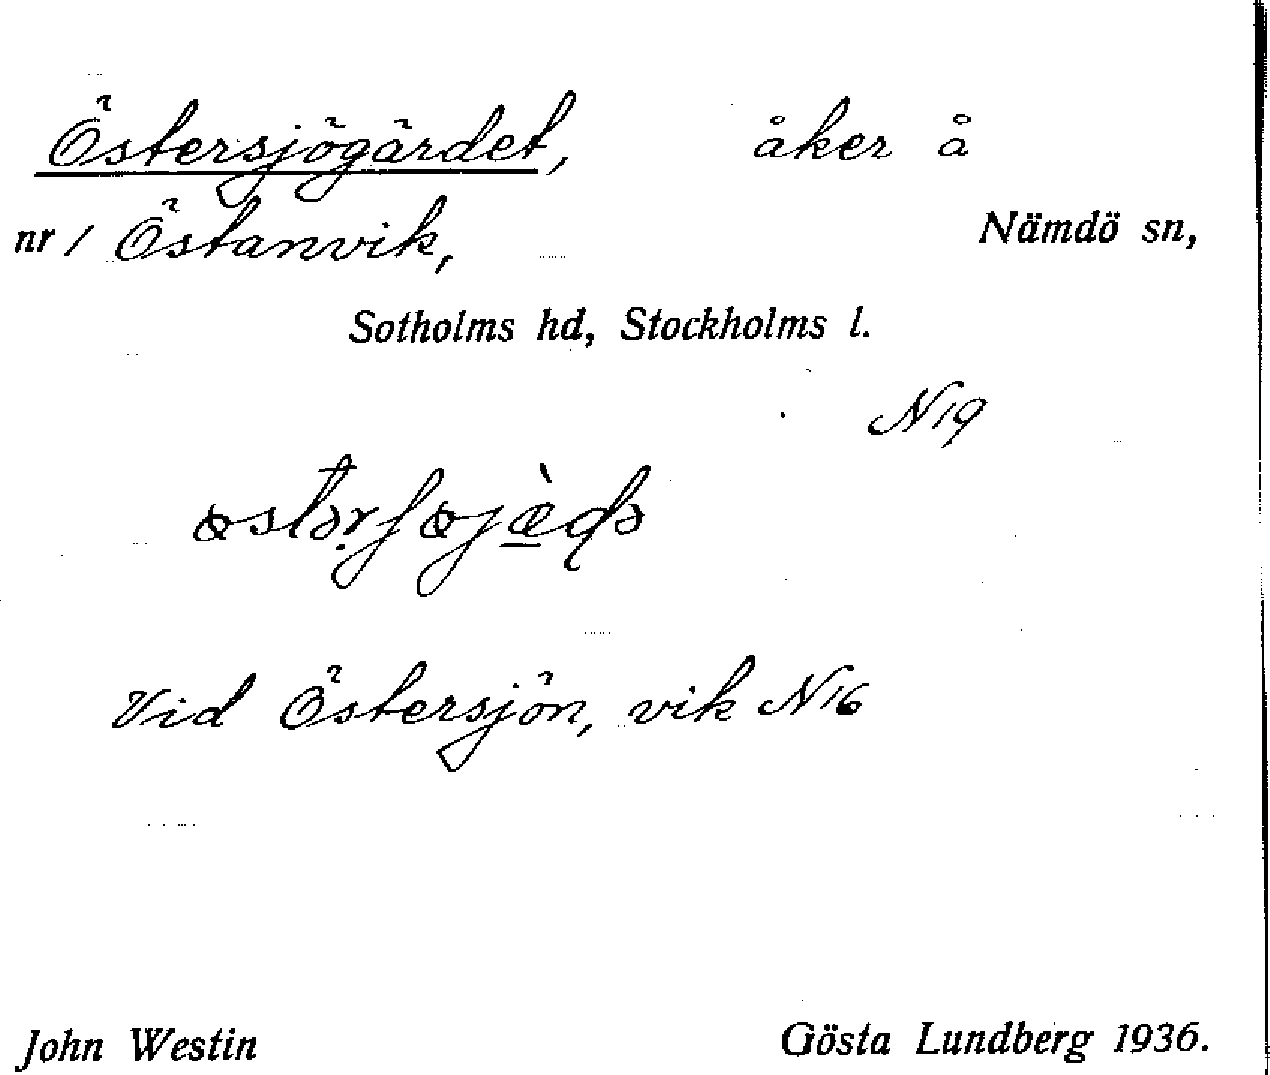 Östersjögärdet, åker å
nr 1 Östanvik, Nämdö sn,
Sotholms hd, Stockholms l.
N19
Vid Östersjön, vik N16
John Westin Gösta Lundberg 1936.